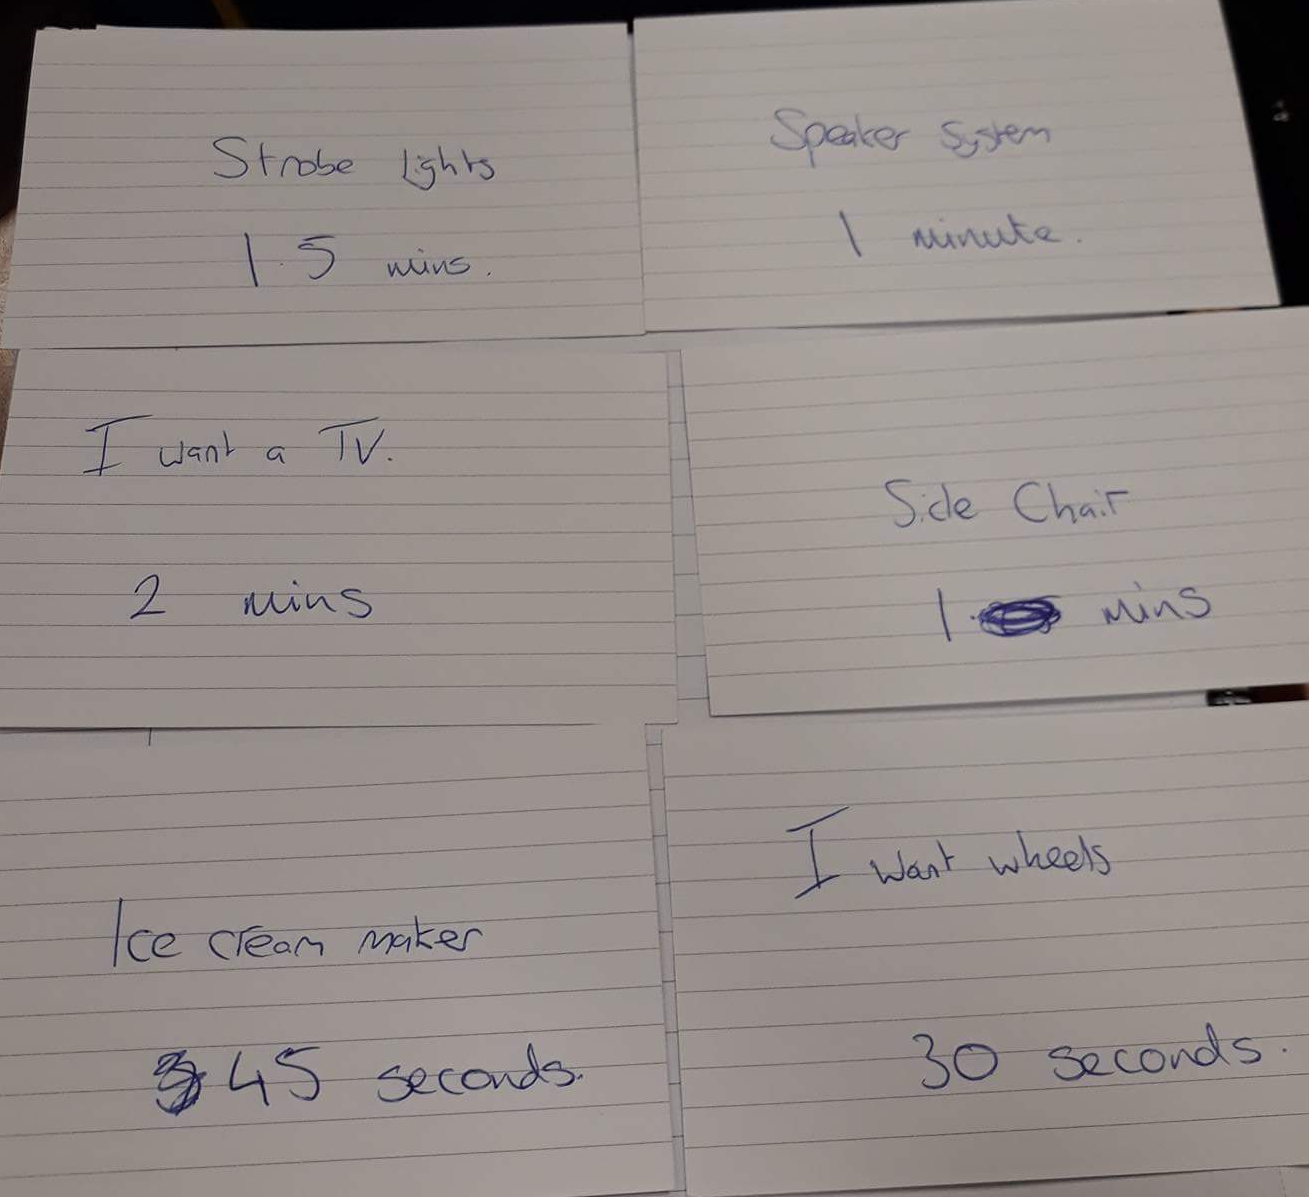 Strobe Lights
1.5 mins.
Speaker System
1 minute.
I want a TV.
2 mins
Side Chair
1. mins
Ice cream maker
45 seconds.
I want wheels
30 seconds.